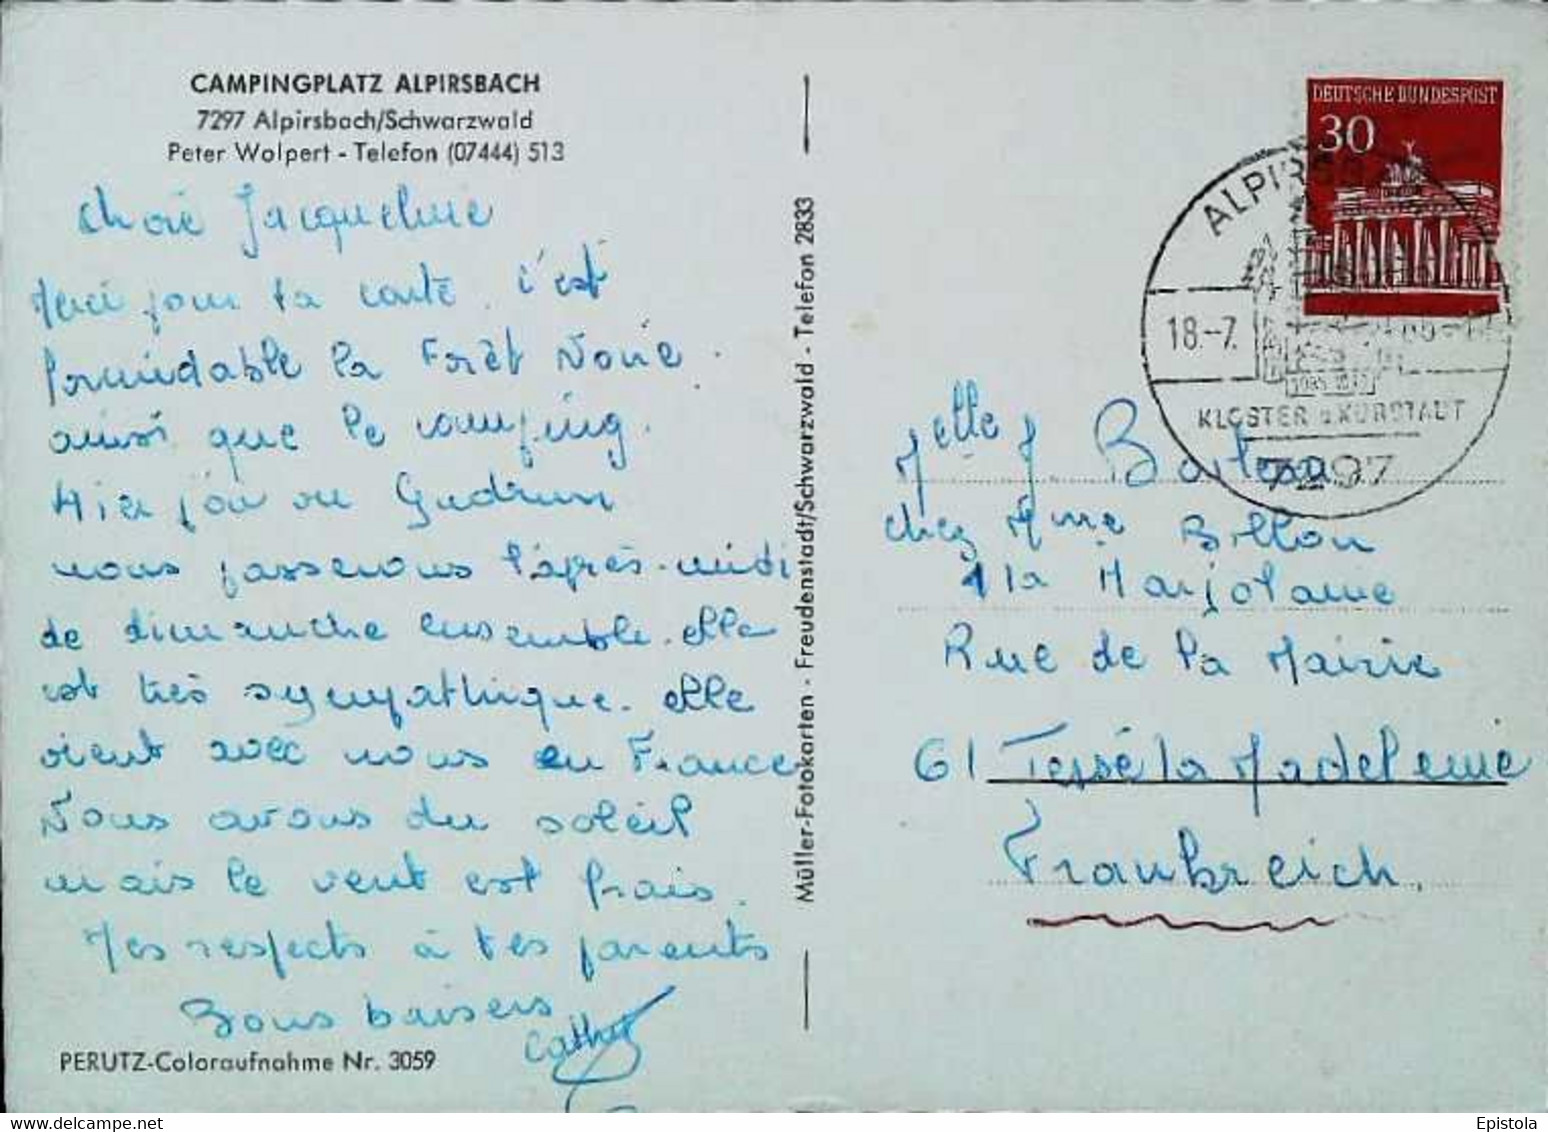 CAMPINGPLATZ ALPIRSBACH
7297 Alpirsbach/Schwarzwald
Peter Wolpert - Telefon (07444) 513
Chère Jacqueline
Merci pour ta carte. C'est
formidable la Forêt Noire.
ainsi que le camping.
Hier j'ai vu Gudrun
nous passerons l'après-midi
de dimanche ensemble. elle
est très sympathique. elle
vient avec nous en France
Nous avons du soleil
mais le vent est frais.
Mes respects à tes parents
Bons baisers
Cathy
PERUTZ-Coloraufnahme Nr. 3059
Müller-Fotokarten - Freudenstadt/Schwarzwald - Telefon 2833
DEUTSCHE BUNDESPOST
30
ALPIRSBA
18.-7.
KLOSTER u. KURSTADT
7297
Melle J Barteau
chez Mme Billon
"la Marjolaine
Rue de la Mairie
61 Tessé la Madeleine
Frankreich.
Epistola